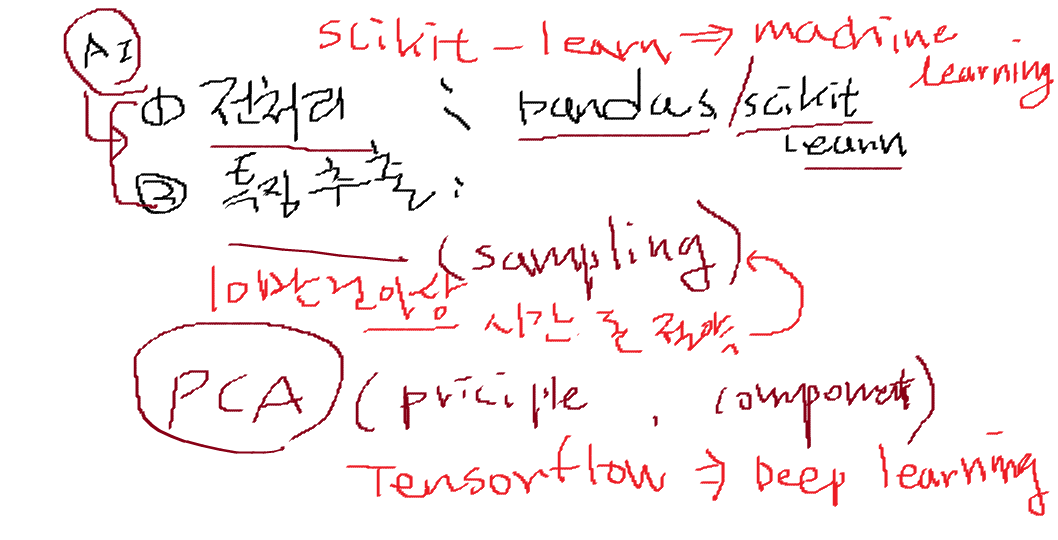 AI
scikit-learn ⇒ machine
learning
① 전처리 : pandas/scikit
Learn
② 특징추출 :
(sampling)
10만건이상
시간을 절약
PCA (priciple . component)
Tensorflow ⇒ Deep learning